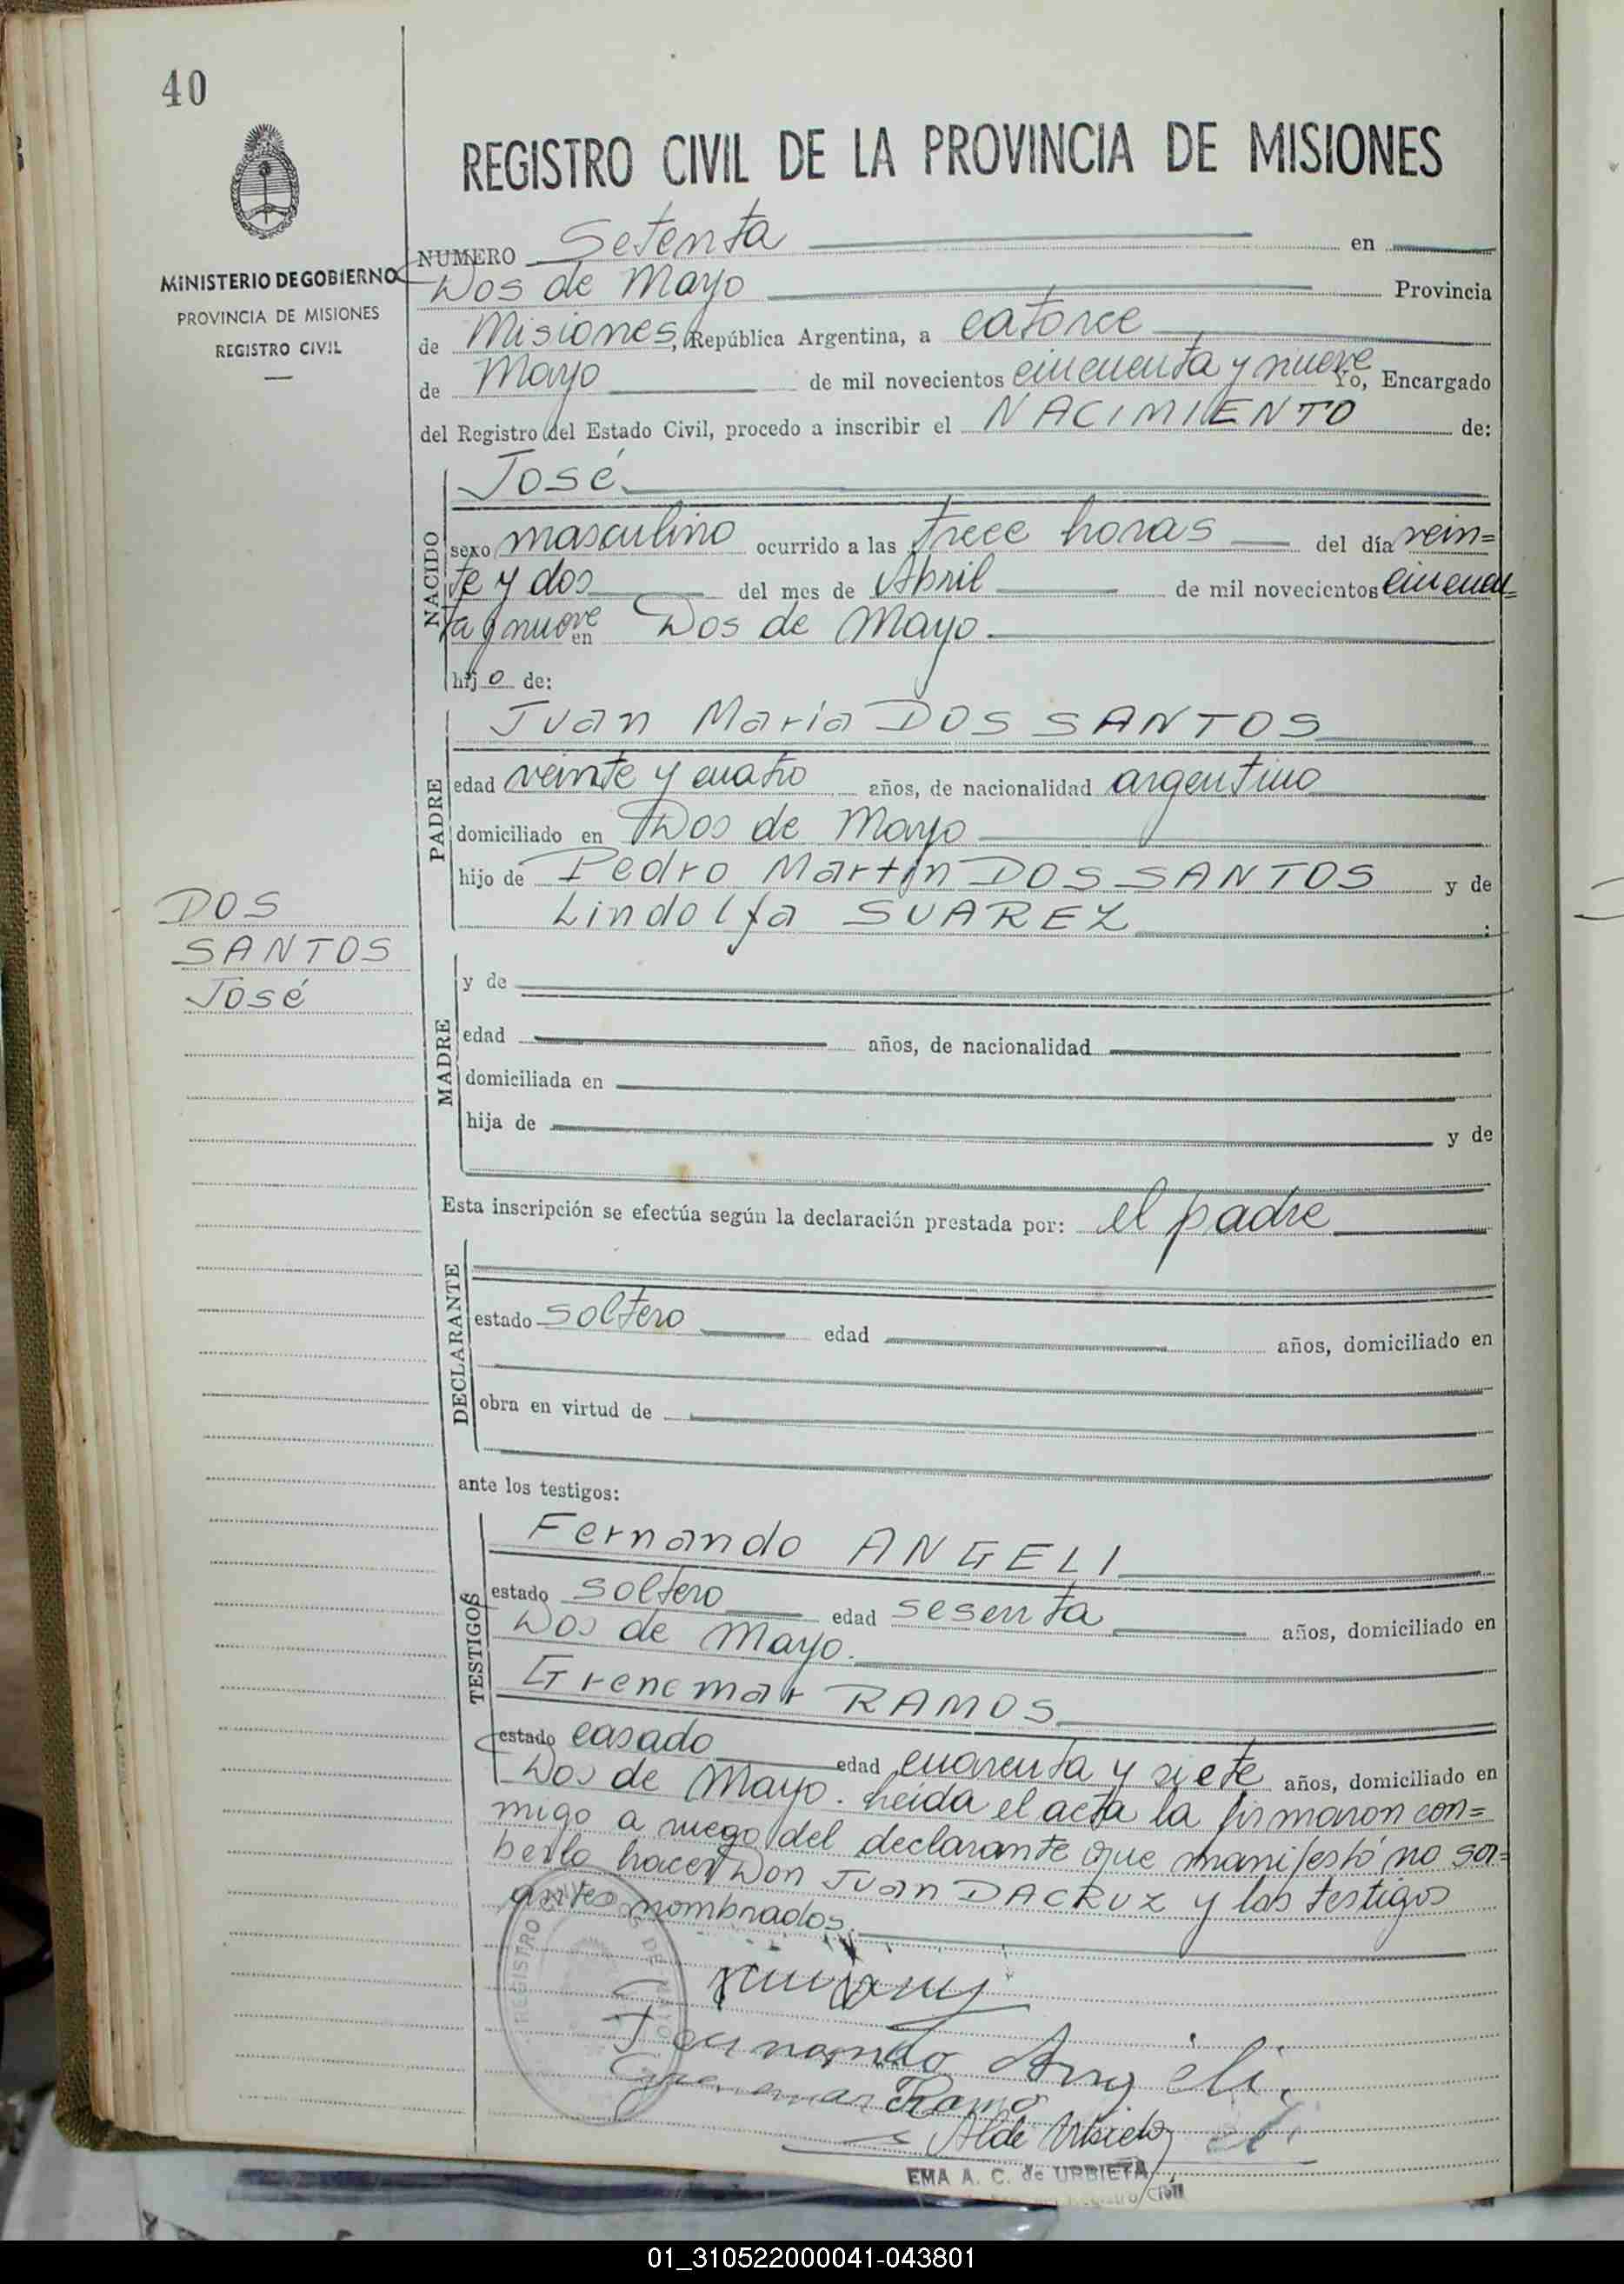 40
REGISTRO CIVIL DE LA PROVINCIA DE MISIONES
MINISTERIO DE GOBIERNO
PROVINCIA DE MISIONES
REGISTRO CIVIL
NUMERO Setenta en
Dos de Mayo Provincia
de Misiones, República Argentina, a catorce
de Mayo de mil novecientos cincuenta y nueve Yo, Encargado
del Registro del Estado Civil, procedo a inscribir el NACIMIENTO de:
NACIDO
José
sexo masculino ocurrido a las trece horas del día vein=
te y dos del mes de Abril de mil novecientos cincuen=
ta y nueve en Dos de Mayo.
hijo de:
PADRE
Juan Maria DOS SANTOS
edad veinte y cuatro años, de nacionalidad argentino
domiciliado en Dos de Mayo
hijo de Pedro Martín DOS SANTOS y de
Lindolfa SUAREZ.
DOS
SANTOS
José
MADRE
y de
edad años, de nacionalidad
domiciliada en
hija de y de
Esta inscripción se efectúa según la declaración prestada por: el padre
DECLARANTE
estado soltero edad años, domiciliado en
obra en virtud de
ante los testigos:
TESTIGOS
Fernando ANGELI
estado soltero edad sesenta años, domiciliado en
Dos de Mayo.
Grenemar RAMOS
estado casado edad cuarenta y siete años, domiciliado en
Dos de Mayo. Leída el acta la firmaron con=
migo a ruego del declarante que manifestó no sa=
berlo hacer Don Juan DACRUZ y los testigos
antes nombrados.
REGISTRO CIVIL DOS DE MAYO
Fernando Angeli.
Grenemar Ramos
Alde Urbieta
EMA A. C. de URBIETA
Registro Civil
01_310522000041-043801